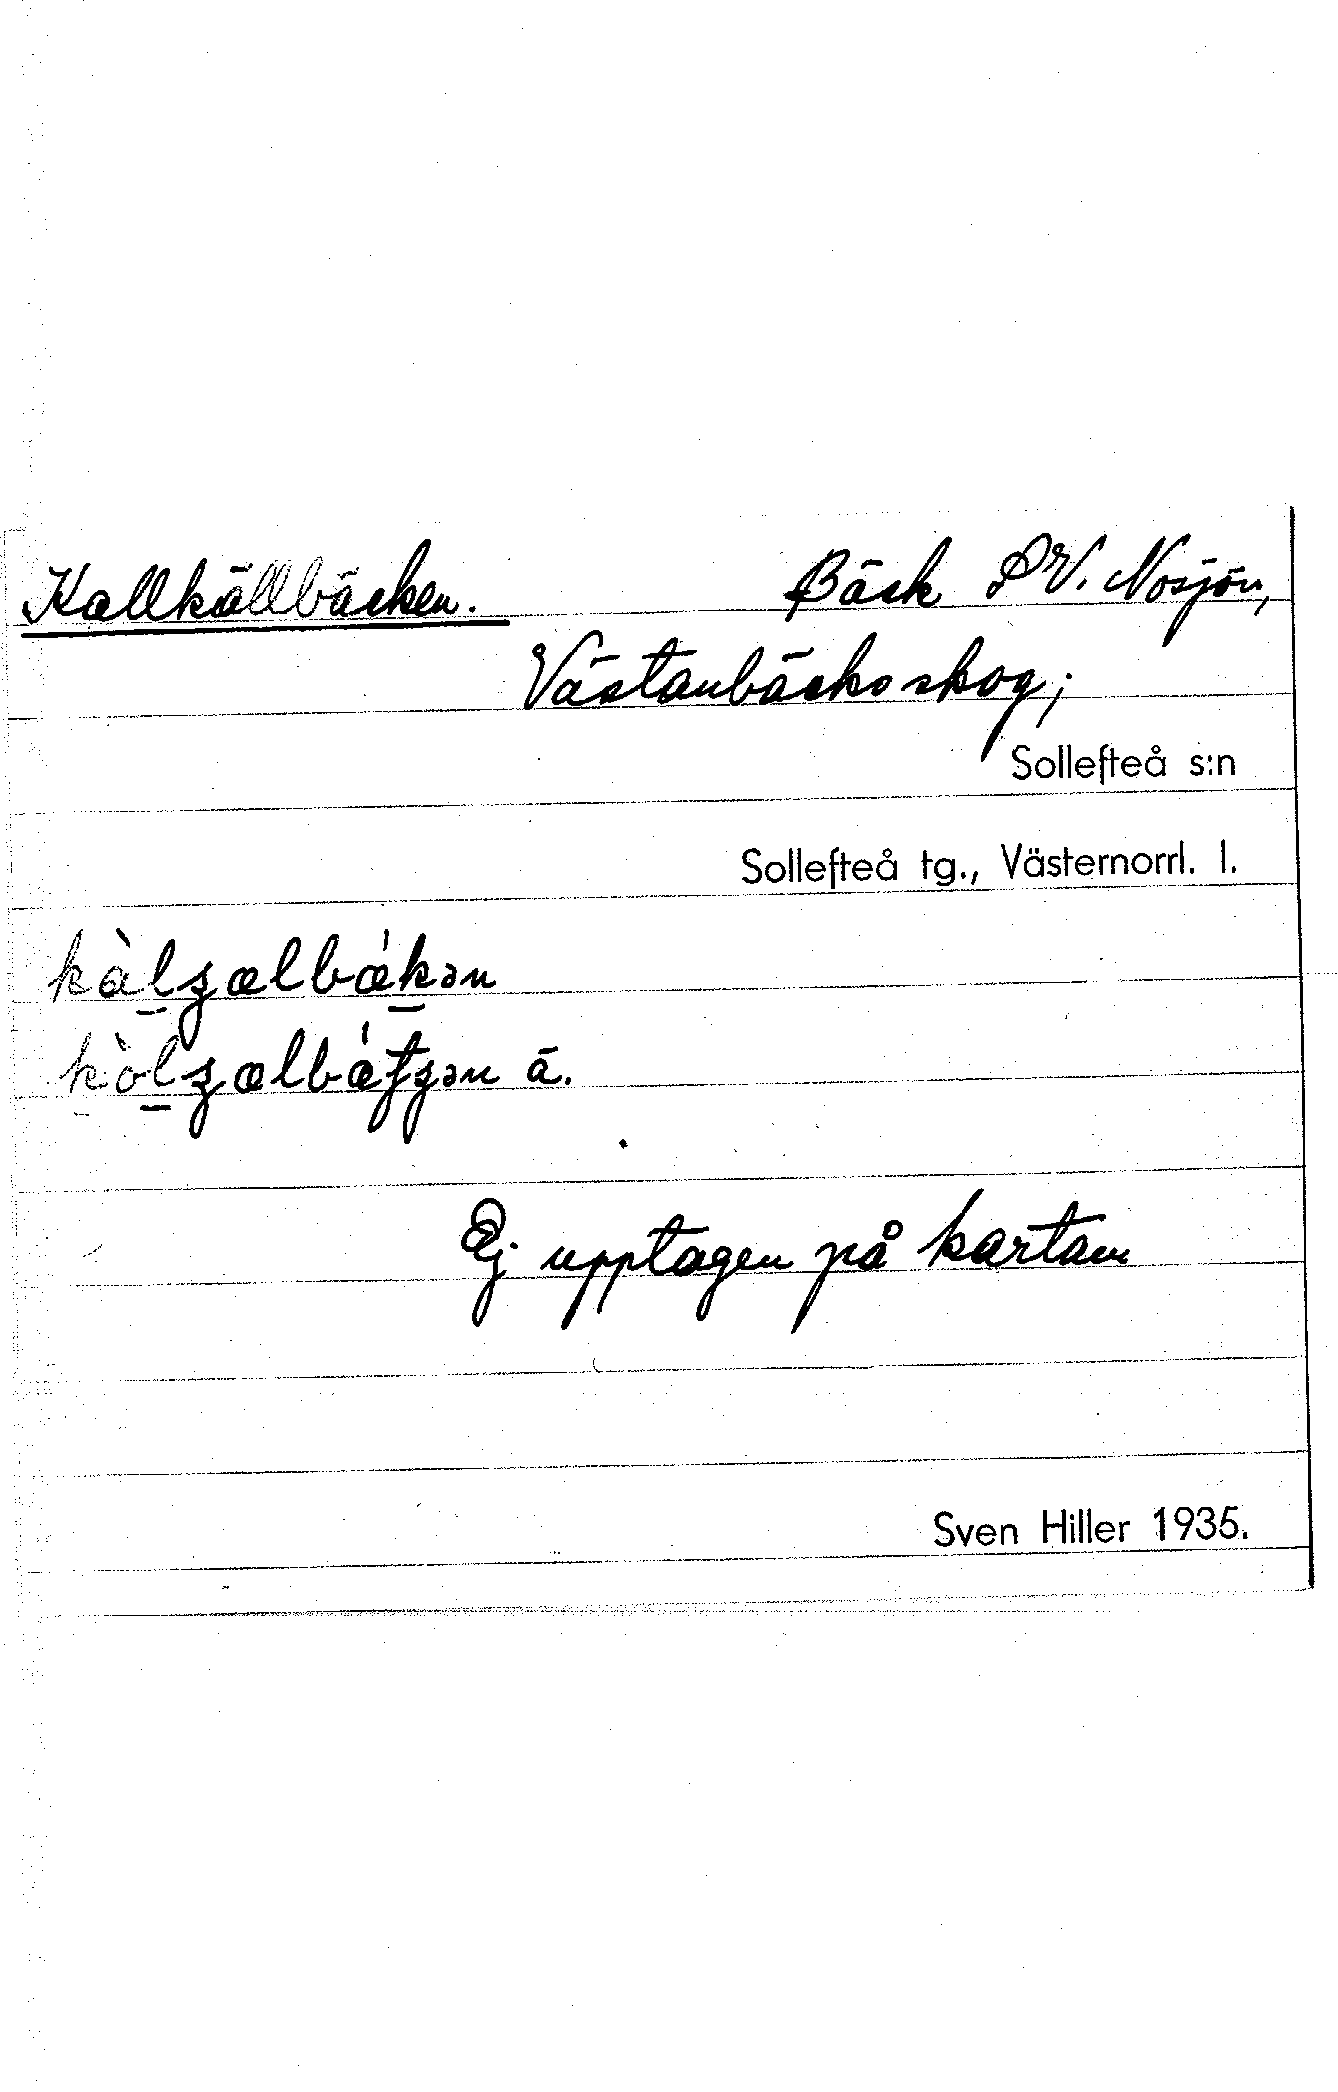 Kallkällbäcken. Bäck SV. Nosjön,
Västanbäcks skog;
Sollefteå s:n
Sollefteå tg., Västernorrl. l.
Ej upptagen på kartan
Sven Hiller 1935.